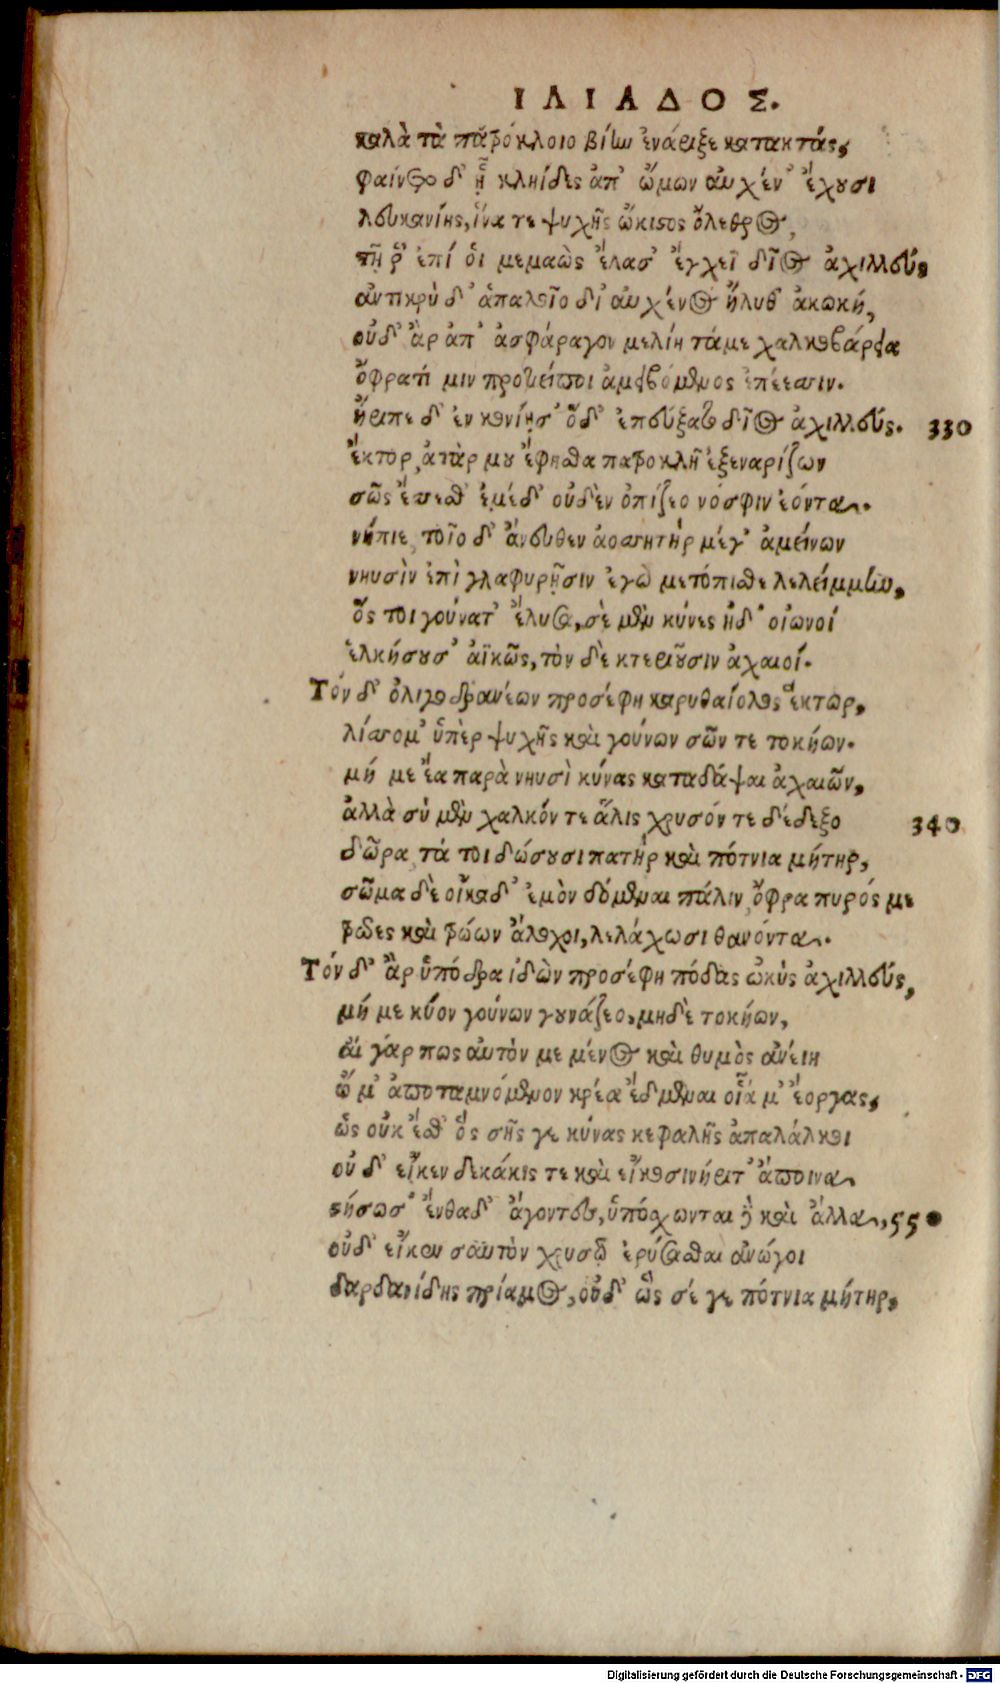 ΙΛΙΑΔΟΣ.
καλὰ τὰ πατρόκλοιο βίην ἐνάριξε κατακτάς,
φαίνετο δ' ᾗ κληίδες ἀπ' ὤμων αὐχέν' ἔχουσι
λευκανίης, ἵνα τε ψυχῆς ὤκιστος ὄλεθρος,
τῇ ῥ' ἐπί οἱ μεμαὼς ἔλασ' ἔγχεϊ δῖος ἀχιλλεύς,
ἀντικρὺ δ' ἁπαλοῖο δι' αὐχένος ἤλυθ' ἀκωκή,
οὐδ' ἂρ ἀπ' ἀσφάραγον μελίη τάμε χαλκοβάρεια
ὄφρα τί μιν προτιείποι ἀμειβόμενος ἐπέεσσιν.
ἤριπε δ' ἐν κονίῃσ' ὅδ' ἐπεύξατο δῖος ἀχιλλεύς. 330
ἕκτορ, ἀτάρ που ἔφησθα πατροκλῆ ἐξεναρίζων
σῶς ἔσεσθ' ἐμέ δ' οὐδὲν ὀπίζεο νόσφιν ἐόντα.
νήπιε, τοῖο δ' ἄνευθεν ἀοσσητὴρ μέγ' ἀμείνων
νηυσὶν ἐπὶ γλαφυρῇσιν ἐγὼ μετόπισθε λελείμμην,
ὅς τοι γούνατ' ἔλυσα, σὲ μὲν κύνες ἠδ' οἰωνοί
ἑλκήσουσ' ἀϊκῶς, τὸν δὲ κτεριοῦσιν ἀχαιοί.
Τόν δ' ὀλιγοδρανέων προσέφη κορυθαίολος ἕκτωρ,
λίσσομ' ὑπὲρ ψυχῆς καὶ γούνων σῶν τε τοκήων.
μή με ἔα παρὰ νηυσὶ κύνας καταδάψαι ἀχαιῶν,
ἀλλὰ σύ μὲν χαλκόν τε ἅλις χρυσόν τε δέδεξο 340
δῶρα τά τοι δώσουσι πατὴρ καὶ πότνια μήτηρ,
σῶμα δὲ οἴκαδ' ἐμὸν δόμεναι πάλιν, ὄφρα πυρός με
τρῶες καὶ τρώων ἄλοχοι, λελάχωσι θανόντα.
Τόν δ' ἂρ ὑπόδρα ἰδὼν προσέφη πόδας ὠκὺς ἀχιλλεύς,
μή με κύον γούνων γουνάζεο, μηδὲ τοκήων,
αἲ γάρ πως αὐτόν με μένος καὶ θυμὸς ἀνείη
ὤ μ' ἀποταμνόμενον κρέα ἔδμεναι οἷά μ' ἔοργας,
ὡς οὐκ ἔσθ' ὅς σῆς γε κύνας κεφαλῆς ἀπαλάλκοι
οὐ δ' εἴκεν δεκάκις τε καὶ εἴκοσινήριτ' ἄποινα
στήσωσ' ἐνθαδ' ἄγοντες, ὑπόσχωνται δὲ καὶ ἄλλα, 550
οὐδ' εἴκεν σ' αὐτὸν χρυσῷ ἐρύσασθαι ἀνώγοι
δαρδανίδης πρίαμος, οὐδ' ὣς σέ γε πότνια μήτηρ,
Digitalisierung gefördert durch die Deutsche Forschungsgemeinschaft - DFG